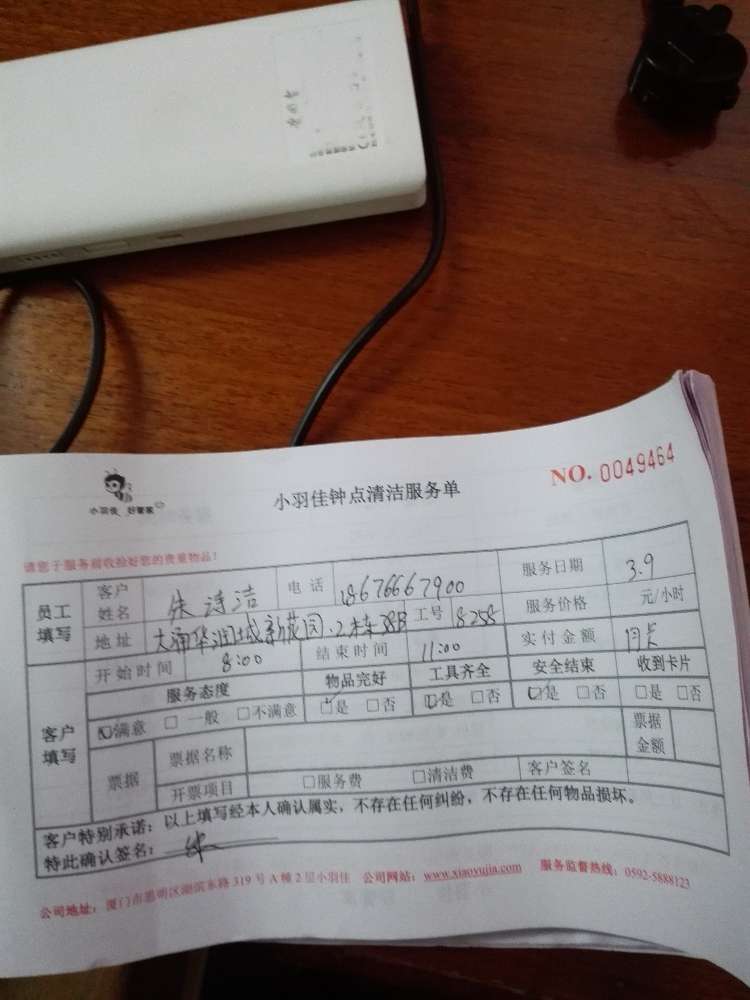 小羽佳 好管家
小羽佳钟点清洁服务单
NO. 0049464
请您于服务前收捡好您的贵重物品！
员工填写 客户姓名 朱诗洁 电话 18676667900 服务日期 3.9
地址 大冲华润城新花园.2栋38B 工号 8258 服务价格 元/小时
开始时间 8:00 结束时间 11:00 实付金额 月卡
客户填写 服务态度 物品完好 工具齐全 安全结束 收到卡片
☑满意 □一般 □不满意 ☑是 □否 ☑是 □否 ☑是 □否 □是 □否
票据 票据名称 票据金额
开票项目 □服务费 □清洁费 客户签名
客户特别承诺：以上填写经本人确认属实，不存在任何纠纷，不存在任何物品损坏。
特此确认签名：
公司地址：厦门市思明区湖滨东路319号A幢2层小羽佳 公司网站：www.xiaoyujia.com 服务监督热线：0592-5888123